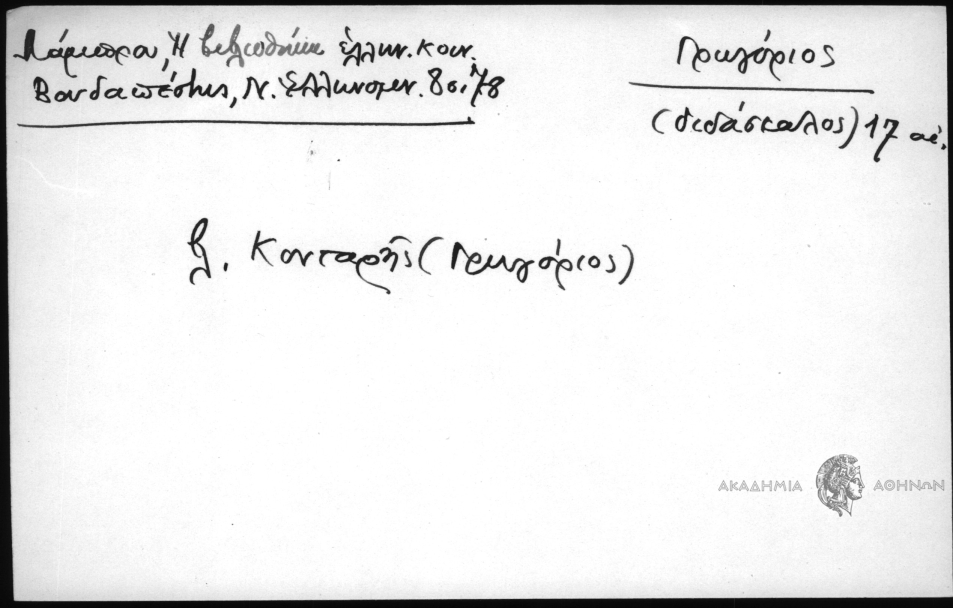 Λάμπρου, Ἡ βιβλιοθήκη ἑλλην. κοιν.
Βουδαπέστης, Ν. Ἑλληνομν. 8ος, 78
Γρηγόριος
(διδάσκαλος) 17 αἰ.
βλ. Κονταρῆς (Γρηγόριος)
ΑΚΑΔΗΜΙΑ ΑΘΗΝΩΝ